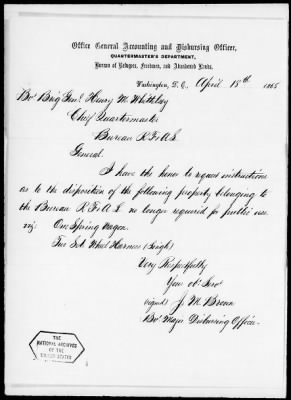 Office General Accounting and Disbursing Officer,
QUARTERMASTER'S DEPARTMENT,
Bureau of Refugees, Freedmen, and Abandoned Lands,
Washington, D. C., April 18th 186
Bvt Brig Genl Henry M. Whittlesey
Chief Quartermaster
Bureau R F & A L
General.
I have the honor to request instructions
as to the disposition of the following property belonging to
the Bureau R F & A L no longer required for public use
viz: One Spring Wagon.
Two Set Wheel Harness (Single)
Very Respectfully
Your obt Servt
(signed) J. M. Brown
Bvt Major Disbursing Officer
THE
NATIONAL ARCHIVES
OF THE
UNITED STATES